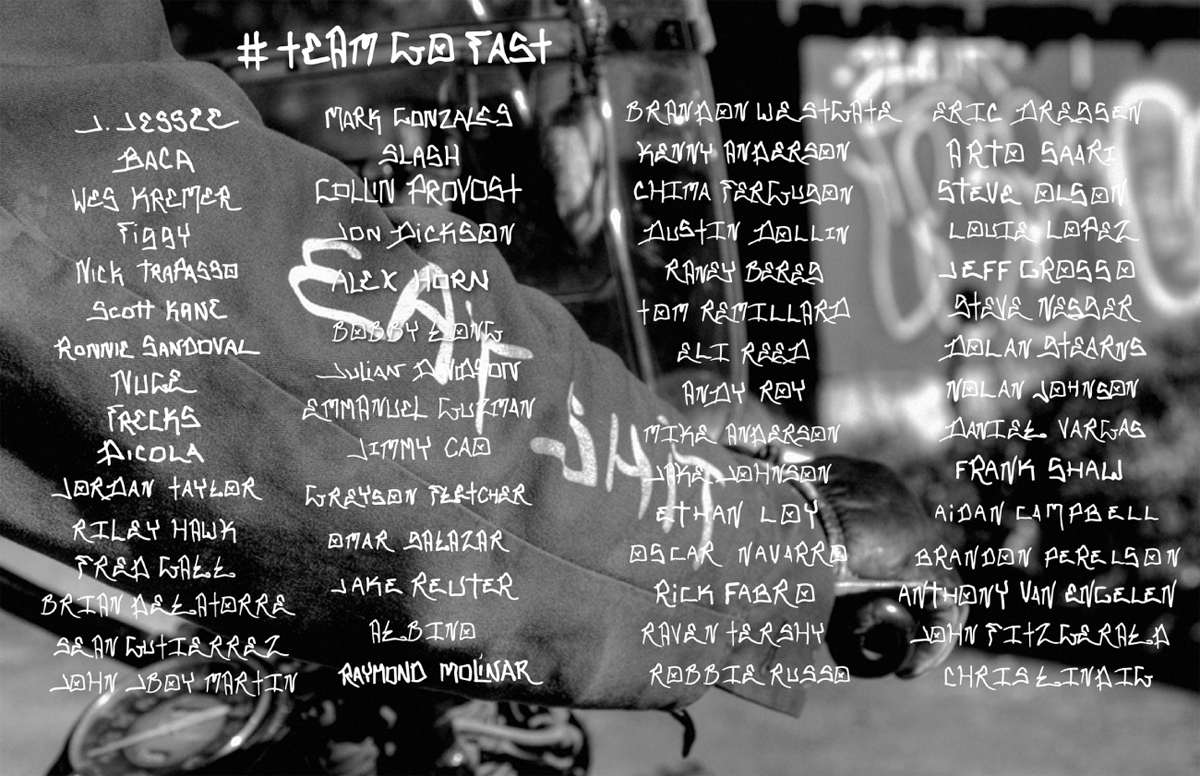 # TEAM GO FAST
J. JESSEE
BACA
WES KREMER
FIGGY
NICK TRAPASSO
SCOTT KANE
RONNIE SANDOVAL
NUGE
FRECKS
DICOLA
JORDAN TAYLOR
RILEY HAWK
FRED GALL
BRIAN DELATORRE
SEAN GUTIERREZ
JOHN JBOY MARTIN
MARK GONZALES
SLASH
COLLIN PROVOST
JON DICKSON
ALEX HORN
BOBBY LONG
JULIAN DAVIDSON
EMMANUEL GUZMAN
JIMMY CAO
GREYSON FLETCHER
OMAR SALAZAR
JAKE REUTER
ALBINO
RAYMOND MOLINAR
BRANDON WESTGATE
KENNY ANDERSON
CHIMA FERGUSON
DUSTIN DOLLIN
RANEY BERES
TOM REMILLARD
ELI REED
ANDY ROY
MIKE ANDERSON
JAKE JOHNSON
ETHAN LOY
OSCAR NAVARRO
RICK FABRO
RAVEN TERSHY
ROBBIE RUSSO
ERIC DRESSEN
ARTO SAARI
STEVE OLSON
LOUIE LOPEZ
JEFF GROSSO
STEVE NESSER
DOLAN STEARNS
NOLAN JOHNSON
DANIEL VARGAS
FRANK SHAW
AIDAN CAMPBELL
BRANDON PERELSON
ANTHONY VAN ENGELEN
JOHN FITZGERALD
CHRIS LINDIG
EAT
SHIT